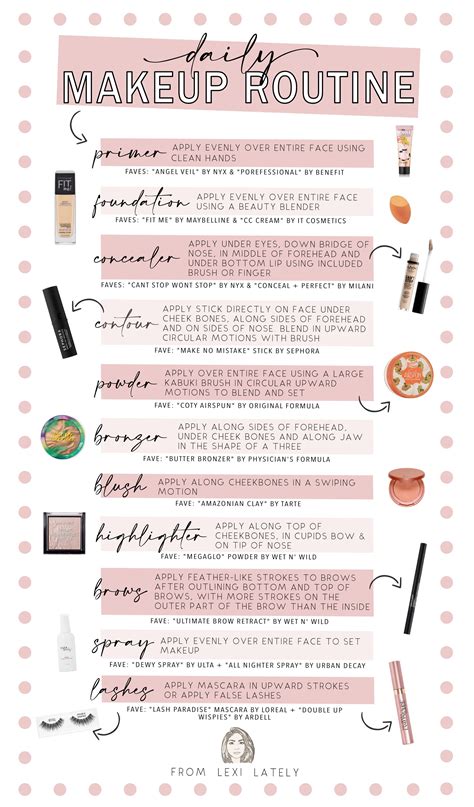 daily
MAKEUP ROUTINE
primer
APPLY EVENLY OVER ENTIRE FACE USING
CLEAN HANDS
FAVES: "ANGEL VEIL" BY NYX & "POREFESSIONAL" BY BENEFIT
foundation
APPLY EVENLY OVER ENTIRE FACE
USING A BEAUTY BLENDER
FAVES: "FIT ME" BY MAYBELLINE & "CC CREAM" BY IT COSMETICS
FIT
concealer
APPLY UNDER EYES, DOWN BRIDGE OF
NOSE, IN MIDDLE OF FOREHEAD AND
UNDER BOTTOM LIP USING INCLUDED
BRUSH OR FINGER
FAVES: "CANT STOP WONT STOP" BY NYX & "CONCEAL + PERFECT" BY MILANI
contour
APPLY STICK DIRECTLY ON FACE UNDER
CHEEK BONES, ALONG SIDES OF FOREHEAD
AND ON SIDES OF NOSE. BLEND IN UPWARD
CIRCULAR MOTIONS WITH BRUSH
FAVE: "MAKE NO MISTAKE" STICK BY SEPHORA
powder
APPLY OVER ENTIRE FACE USING A LARGE
KABUKI BRUSH IN CIRCULAR UPWARD
MOTIONS TO BLEND AND SET
FAVE: "COTY AIRSPUN" BY ORIGINAL FORMULA
bronzer
APPLY ALONG SIDES OF FOREHEAD,
UNDER CHEEK BONES AND ALONG JAW
IN THE SHAPE OF A THREE
FAVE: "BUTTER BRONZER" BY PHYSICIAN'S FORMULA
blush
APPLY ALONG CHEEKBONES IN A SWIPING
MOTION
FAVE: "AMAZONIAN CLAY" BY TARTE
highlighter
APPLY ALONG TOP OF
CHEEKBONES, IN CUPIDS BOW &
ON TIP OF NOSE
FAVE: "MEGAGLO" POWDER BY WET N' WILD
brows
APPLY FEATHER-LIKE STROKES TO BROWS
AFTER OUTLINING BOTTOM AND TOP OF
BROWS, WITH MORE STROKES ON THE
OUTER PART OF THE BROW THAN THE INSIDE
FAVE: "ULTIMATE BROW RETRACT" BY WET N' WILD
spray
APPLY EVENLY OVER ENTIRE FACE TO SET
MAKEUP
FAVE: "DEWY SPRAY" BY ULTA + "ALL NIGHTER SPRAY" BY URBAN DECAY
lashes
APPLY MASCARA IN UPWARD STROKES
OR APPLY FALSE LASHES
FAVE: "LASH PARADISE" MASCARA BY LOREAL + "DOUBLE UP
WISPIES" BY ARDELL
FROM LEXI LATELY